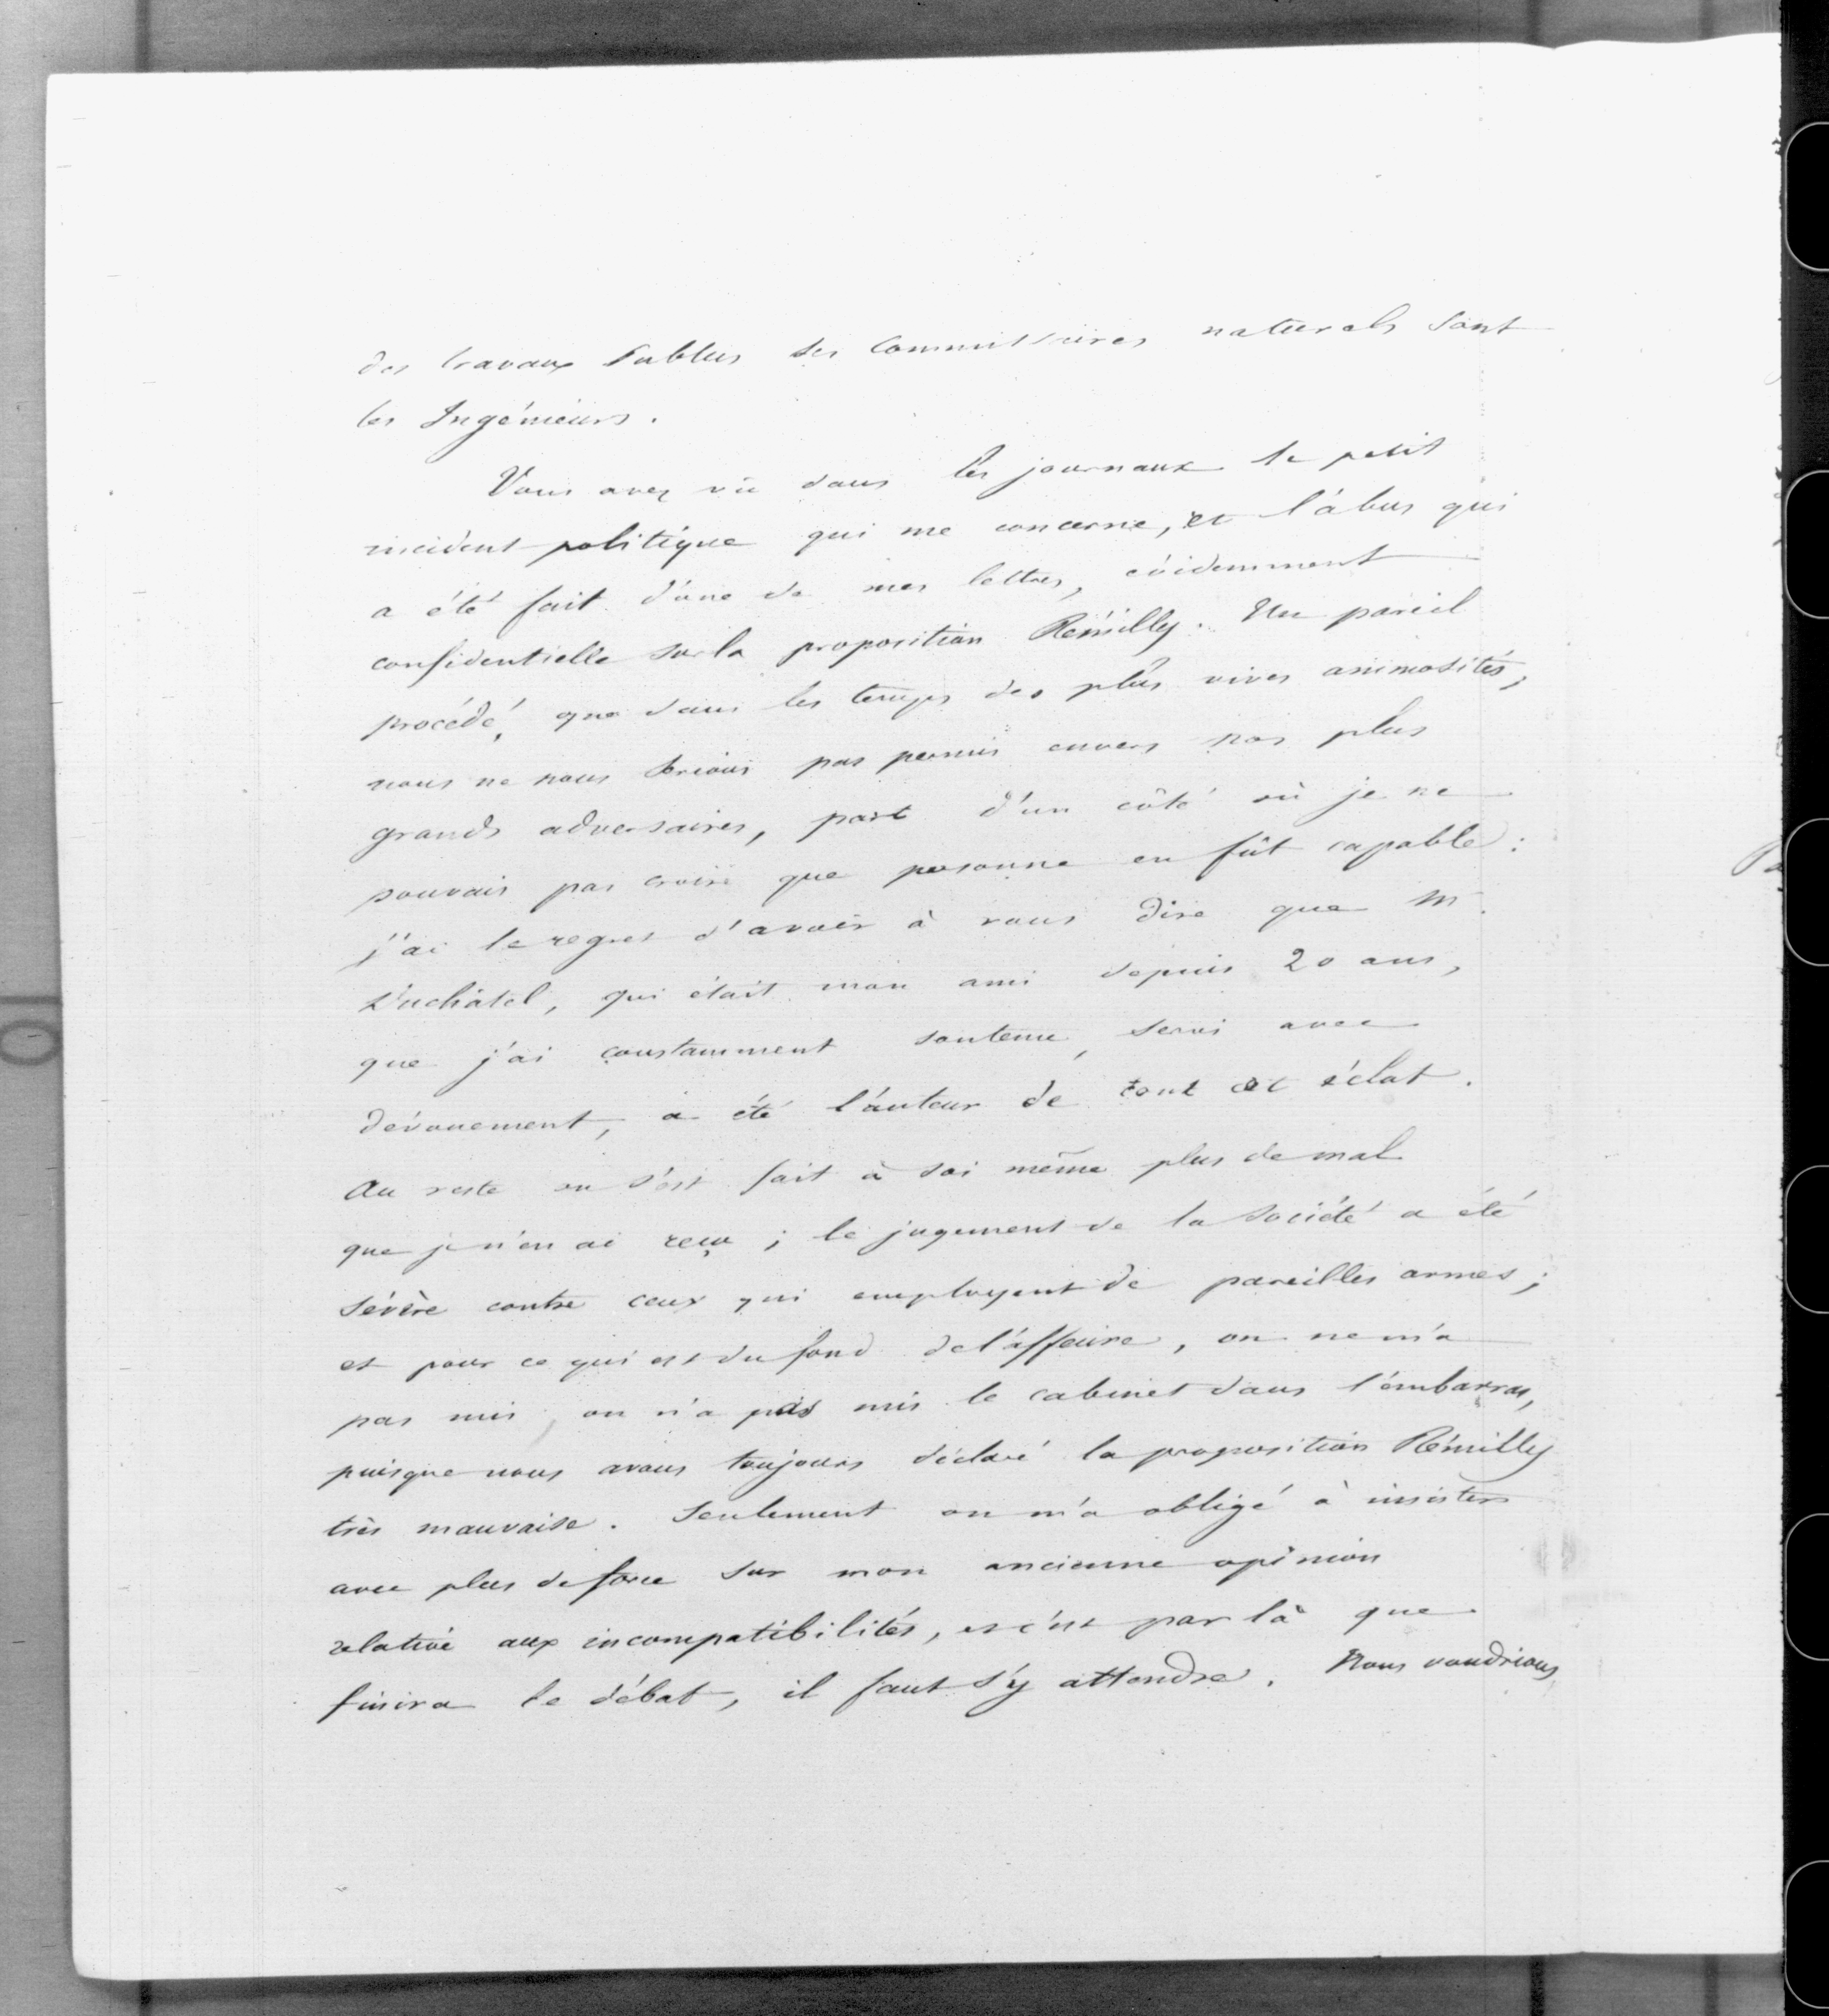 des travaux Publics les Commissaires naturels sont
les Ingénieurs.
Vous avez vu dans les journaux le petit
incident politique qui me concerne, et l'abus qui
a été fait d'une de mes lettres, évidemment
confidentielle sur la proposition Rémilly. Un pareil
procédé, que dans les temps des plus vives animosités,
nous ne nous serions pas permis envers nos plus
grands adversaires, part d'un côté où je ne
pouvais pas croire que personne en fût capable :
j'ai le regret d'avoir à vous dire que M.
Duchâtel, qui était mon ami depuis 20 ans,
que j'ai constamment soutenu, servi avec
dévouement, a été l'auteur de tout cet éclat.
Au reste on s'est fait à soi même plus de mal
que je n'en ai reçu ; le jugement de la société a été
sévère contre ceux qui employent de pareilles armes ;
et pour ce qui est du fond de l'affaire, on ne m'a
pas mis, on n'a pas mis le cabinet dans l'embarras,
puisque nous avons toujours déclaré la proposition Rémilly
très mauvaise. Seulement on m'a obligé à insister
avec plus de force sur mon ancienne opinion
relative aux incompatibilités, et c'est par là que
finira le débat, il faut s'y attendre. Nous voudrions